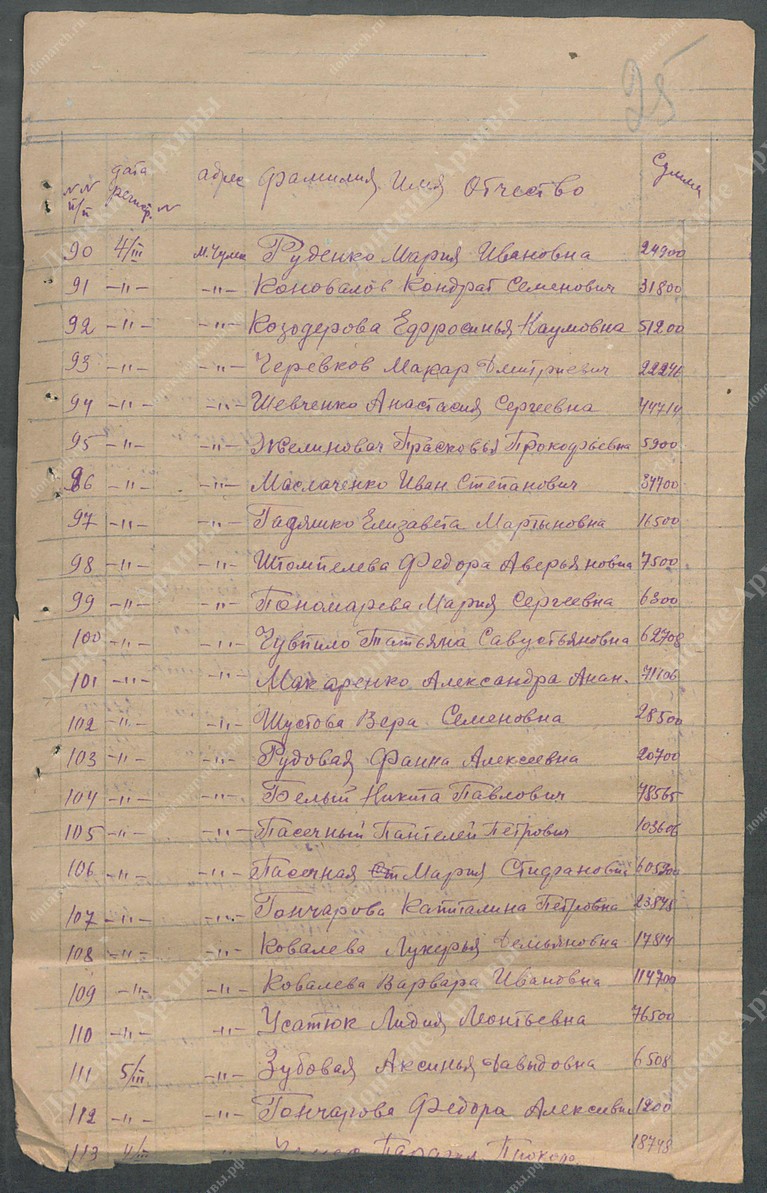 25
№№ п/п дата регистр. № адрес Фамилия Имя Отчество Сумма
90 4/III М. Чулек Руденко Мария Ивановна 24900
91 -"- -"- Коновалов Кондрат Семенович 31800
92 -"- -"- Козодерова Ефросинья Наумовна 51200
93 -"- -"- Черевков Макар Дмитриевич
94 -"- -"- Шевченко Анастасия Сергеевна
95 -"- -"- Прасковья Прокофьевна 5900
96 -"- -"- Маслаченко Иван Степанович 37700
97 -"- -"- Гадяшко Елизавета Мартыновна 16500
98 -"- -"- Штомпелева Федора Аверьяновна 7500
99 -"- -"- Пономарева Мария Сергеевна 6300
100 -"- -"- Чувпило Татьяна Савустьяновна 62708
101 -"- -"- Макаренко Александра Анан. 71106
102 -"- -"- Шустова Вера Семеновна 28500
103 -"- -"- Рудовая Фанна Алексеевна 20700
104 -"- -"- Белый Никита Павлович 78565
105 -"- -"- Пасечный Пантелей Петрович 103606
106 -"- -"- Пасечная Мария
107 -"- -"- Гончарова Капиталина Петровна 23848
108 -"- -"- Ковалева Лукерья Демьяновна 17814
109 -"- -"- Ковалева Варвара Ивановна 114700
110 -"- -"- Усатюк Лидия Леонтьевна 76500
111 5/III -"- Зубовая Аксинья Давыдовна 6508
112 -"- -"- Гончарова Федора 1200
113 4/III 18748